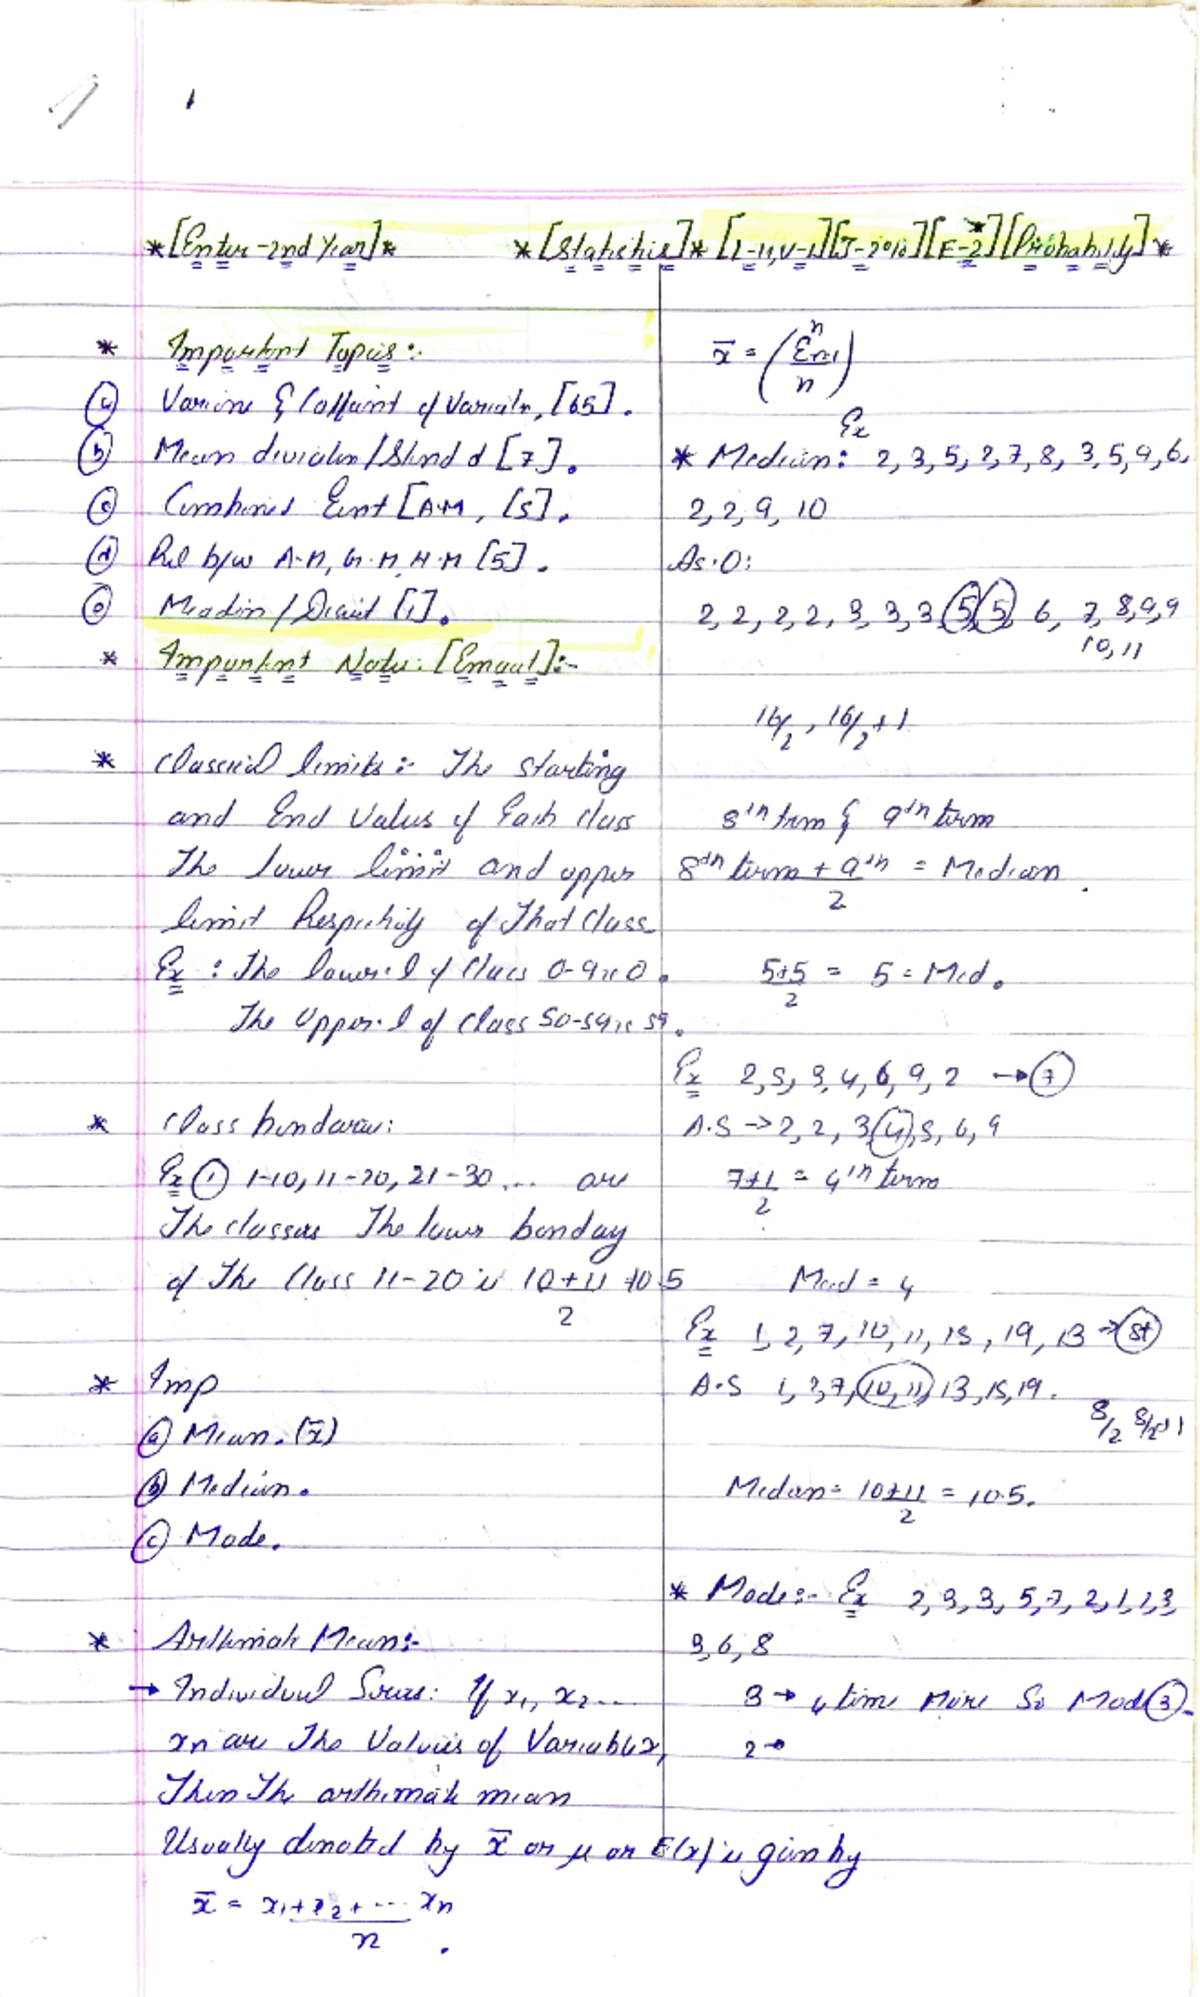 *[Enter-2nd Year]* *[Statichis]* [L-11,V-1][J-2%][E-2][Probability]*
* Important Topics:
(a) Varion & Coffaint of Variatn, [65].
(b) Mean diviation/Stand d [7].
(c) Combined Eint [A.M, [5].
(d) Rel b/w A.M, G.M, H.M [5].
(e) Meadin/Disciut [1].
* Important Note: [Emaul]:-
* Classical limits:- The starting
and End Values of Each Class
The lower limit and upper
limit Respectively of That Class
Ex: The lower.l of Class 0-9 is 0.
The Upper.l of Class 50-59 is 59.
* Class bondarau:
Ex (1) 1-10, 11-20, 21-30 ... are
The classes The lower bonday
of The Class 11-20 is 10+11/2 10.5
* Imp
(a) Mean. (x̄)
(b) Median.
(c) Mode.
* Arthimatk Mean:-
→ Individual Series: If x₁, x₂....
xn are The Values of Variable x,
Then The arthimatk mean
Usually denoted by x̄ or μ or E(x) is given by
x̄ = x₁+x₂+ --- xn
n .
x̄ = (Σ
n)
Ex
* Median: 2, 3, 5, 2, 7, 8, 3, 5, 9, 6,
2, 2, 9, 10
As.O:
2, 2, 2, 2, 3, 3, 3, 5, 5, 6, 7, 8, 9, 9
10, 11
16/2, 16/2+1
8th term & 9th term
8th term + 9th = Median.
2
5+5 = 5 = Med.
2
Ex 2, 5, 3, 4, 6, 9, 2 → (7)
A.S → 2, 2, 3, (4), 5, 6, 9
7+1 = 4th term
2
Med = 4
Ex 1, 2, 7, 10, 11, 15, 19, 13 → (8t)
A.S 1, 2, 7, (10, 11), 13, 15, 19.
8/2 8/2+1
Median = 10+11 = 10.5.
2
* Mode:- Ex 2, 3, 3, 5, 7, 2, 1, 2, 3,
3, 6, 8
3 → 4 time More So Mod (3).
2 →